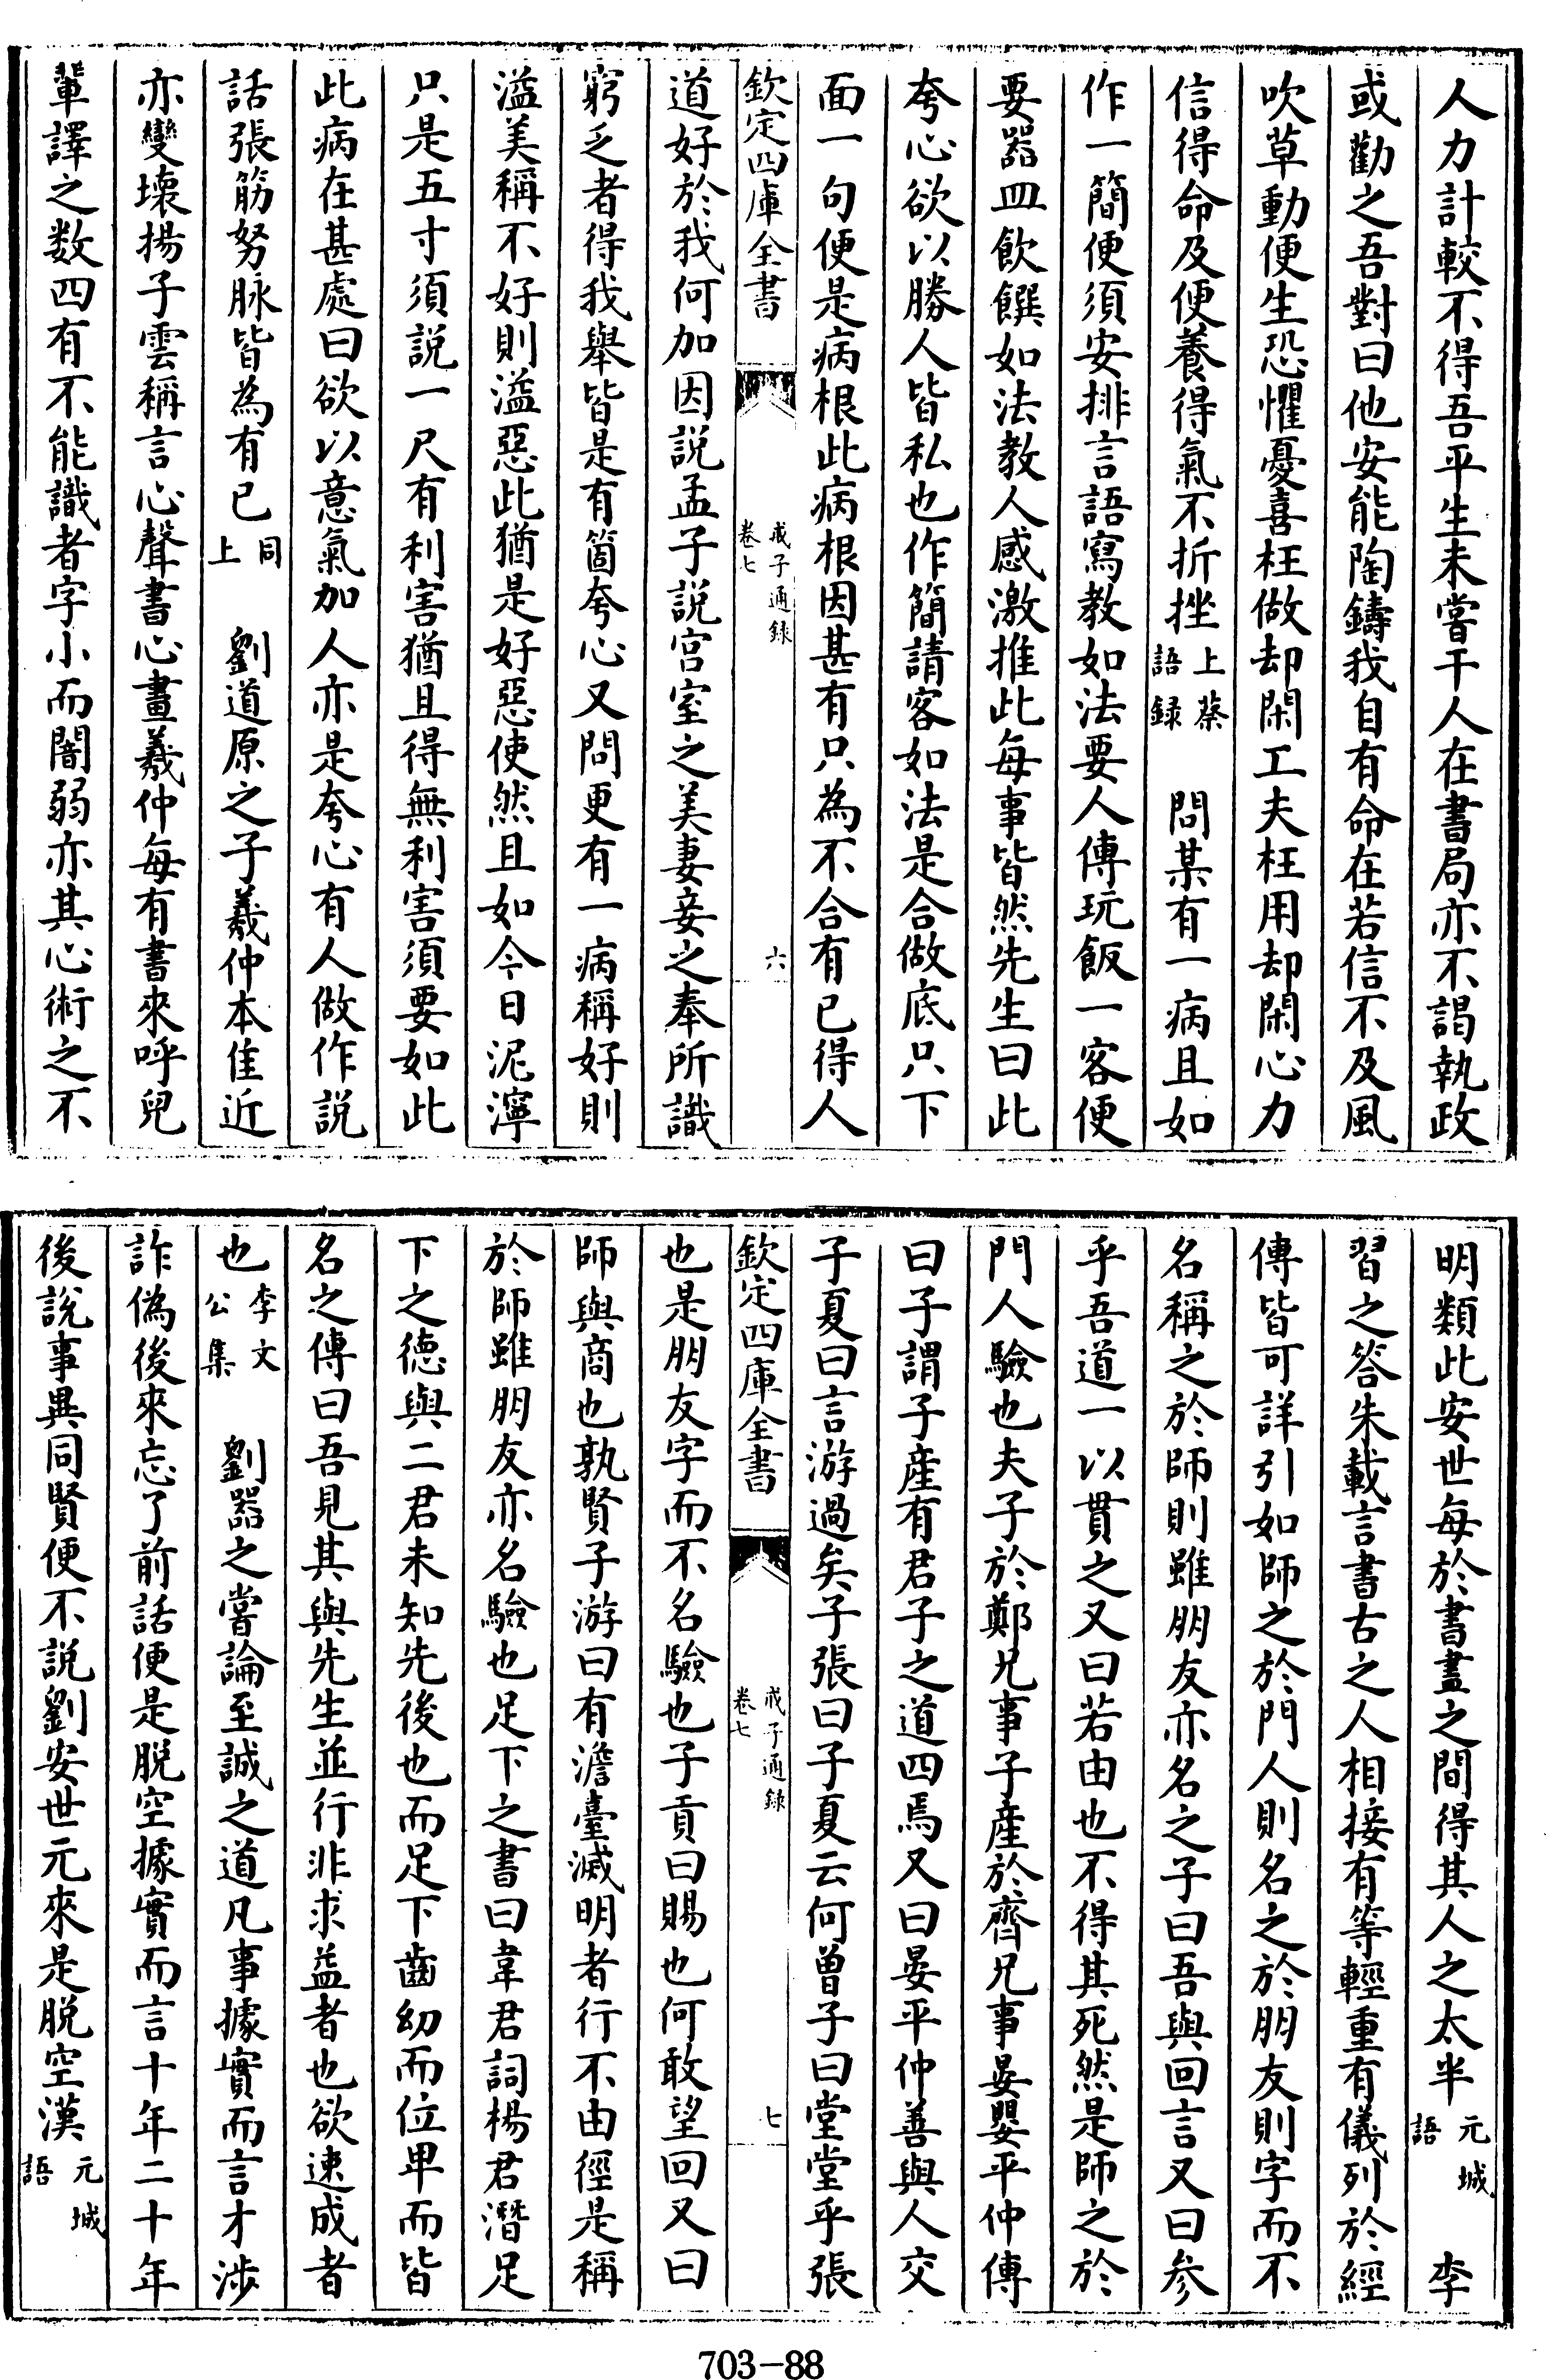 人力計較不得吾平生未嘗干人在書局亦不謁執政
或勸之吾對曰他安能陶鑄我自有命在若信不及風
吹草動便生恐懼憂喜枉做却閑工夫枉用却閑心力
信得命及便養得氣不折挫上蔡語録　問某有一病且如
作一簡便須安排言語寫教如法要人傳玩飯一客便
要器皿飲饌如法教人感激推此每事皆然先生曰此
夸心欲以勝人皆私也作簡請客如法是合做底只下
面一句便是病根此病根因甚有只為不合有已得人
欽定四庫全書
戒子通録
卷七
六
道好於我何加因説孟子説宫室之美妻妾之奉所識
窮乏者得我舉皆是有箇夸心又問更有一病稱好則
溢美稱不好則溢惡此猶是好惡使然且如今日泥濘
只是五寸須説一尺有利害猶且得無利害須要如此
此病在甚處曰欲以意氣加人亦是夸心有人做作説
話張筋努脉皆為有已同上　劉道原之子羲仲本佳近
亦變壊揚子雲稱言心聲書心畫羲仲每有書來呼兒
軰譯之数四有不能識者字小而闇弱亦其心術之不
明類此安世每於書畫之間得其人之太半元城語　李
習之答朱載言書古之人相接有等輕重有儀列於經
傳皆可詳引如師之於門人則名之於朋友則字而不
名稱之於師則雖朋友亦名之子曰吾與回言又曰参
乎吾道一以貫之又曰若由也不得其死然是師之於
門人驗也夫子於鄭兄事子産於齊兄事晏嬰平仲傳
曰子謂子産有君子之道四焉又曰晏平仲善與人交
子夏曰言游過矣子張曰子夏云何曽子曰堂堂乎張
欽定四庫全書
戒子通録
卷七
七
也是朋友字而不名驗也子貢曰賜也何敢望回又曰
師與商也孰賢子游曰有澹臺滅明者行不由徑是稱
於師雖朋友亦名驗也足下之書曰韋君詞楊君潛足
下之徳與二君未知先後也而足下齒幼而位卑而皆
名之傳曰吾見其與先生並行非求益者也欲速成者
也李文公集　劉器之嘗論至誠之道凡事據實而言才渉
詐偽後來忘了前話便是脱空據實而言十年二十年
後說事異同賢便不説劉安世元來是脱空漢元城語
703-88